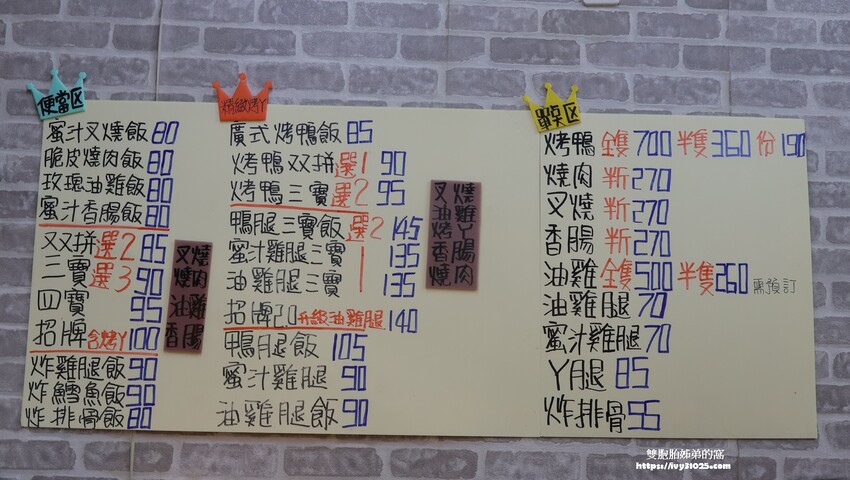 便當区
蜜汁叉燒飯80
脆皮燒肉飯80
玫瑰油雞飯80
蜜汁香腸飯80
双拼選2 85
三寶選3 90
四寶 95
招牌含烤丫100
炸雞腿飯90
炸鱈魚飯90
炸排骨飯80
叉燒
燒肉
油雞
香腸
精緻烤丫
廣式烤鴨飯85
烤鴨双拼選1 90
烤鴨三寶選2 95
鴨腿三寶飯選2 145
蜜汁雞腿三寶1 135
油雞腿三寶1 135
招牌2.0升級油雞腿140
鴨腿飯 105
蜜汁雞腿 90
油雞腿飯90
叉燒
油雞
烤丫
香腸
燒肉
單点区
烤鴨 全隻700半隻360份190
燒肉 半斤270
叉燒 半斤270
香腸 半斤270
油雞 全隻500半隻260需預訂
油雞腿70
蜜汁雞腿70
丫腿 85
炸排骨55
雙胞胎姊弟的窩
https://ivy31025.com